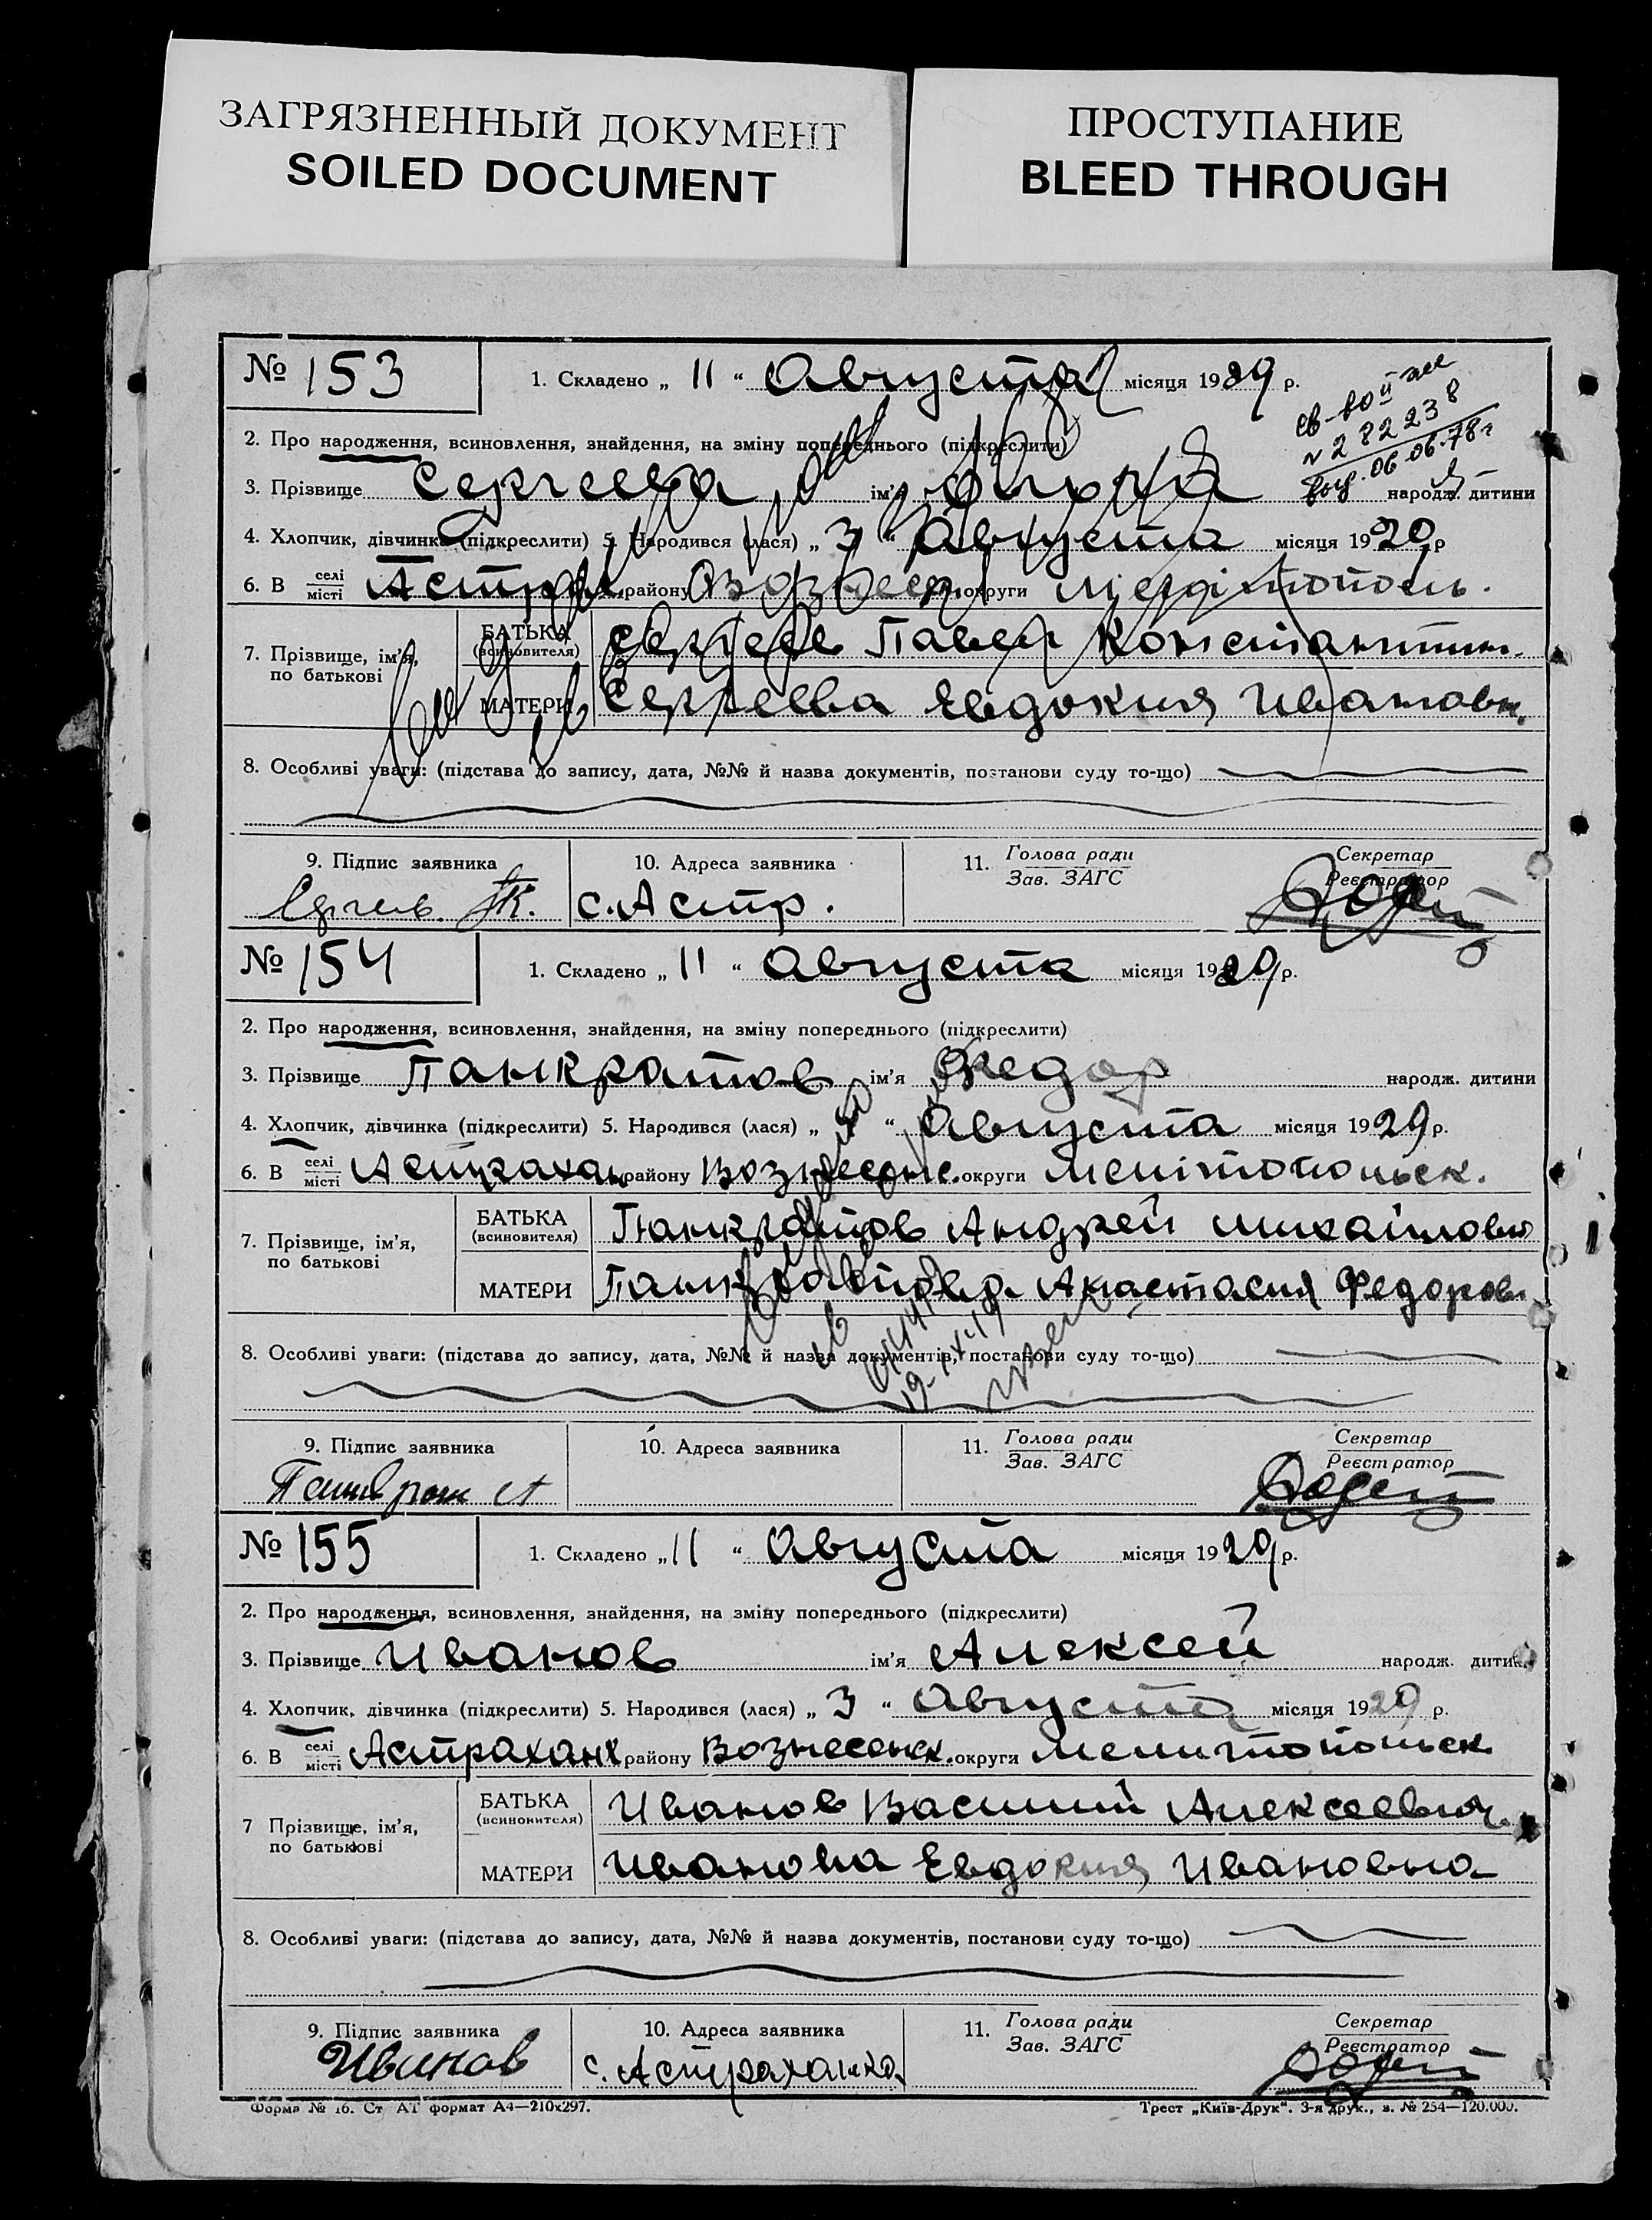 ЗАГРЯЗНЕННЫЙ ДОКУМЕНТ
SOILED DOCUMENT
ПРОСТУПАНИЕ
BLEED THROUGH
№ 153
1. Складено „ 11 “ Августа місяця 1929 р.
св-во II
№ 282238
06.06.78 г
2. Про народження, всиновлення, знайдення, на зміну попереднього (підкреслити)
3. Прізвище Сергеева ім'я народж. дитини
4. Хлопчик, дівчинка (підкреслити) 5. Народився (лася) „ 3 “ Августа місяця 1929 р
6. В селі місті Астрах. району Вознесен. округи Мелітополь.
7. Прізвище, ім'я, по батькові
БАТЬКА (всиновителя) Сергеев Павел Константин.
МАТЕРИ Сергеева Евдокия Ивановн.
8. Особливі уваги: (підстава до запису, дата, №№ й назва документів, постанови суду то-що)
9. Підпис заявника
10. Адреса заявника
11. Голова ради Зав. ЗАГС
Секретар Реєстратор
с. Астр.
№ 154
1. Складено „ 11 “ Августа місяця 1929 р.
2. Про народження, всиновлення, знайдення, на зміну попереднього (підкреслити)
3. Прізвище Панкратов ім'я Федор народж. дитини
4. Хлопчик, дівчинка (підкреслити) 5. Народився (лася) „ “ Августа місяця 1929 р.
6. В селі місті Астрахан району Вознесенс. округи Мелітопольск.
7. Прізвище, ім'я, по батькові
БАТЬКА (всиновителя) Панкратов Андрей Михайлович
МАТЕРИ Панкратова Анастасия Федоровн
8. Особливі уваги: (підстава до запису, дата, №№ й назва документів, постанови суду то-що)
9. Підпис заявника
10. Адреса заявника
11. Голова ради Зав. ЗАГС
Секретар Реєстратор
№ 155
1. Складено „ 11 “ Августа місяця 1929 р.
2. Про народження, всиновлення, знайдення, на зміну попереднього (підкреслити)
3. Прізвище Иванов ім'я Алексей народж. дитини
4. Хлопчик, дівчинка (підкреслити) 5. Народився (лася) „ 3 “ Августа місяця 1929 р.
6. В селі місті Астрахан району Вознесенск. округи Мелитопольск
7 Прізвище, ім'я, по батькові
БАТЬКА (всиновителя) Иванов Василий Алексеевич
МАТЕРИ Иванова Евдокия Ивановна
8. Особливі уваги: (підстава до запису, дата, №№ й назва документів, постанови суду то-що)
9. Підпис заявника
10. Адреса заявника
11. Голова ради Зав. ЗАГС
Секретар Реєстратор
Иванов
с. Астраханка.
Форма № 16. Ст АТ формат А4—210х297.
Трест „Київ-Друк“. 3-я друк., з. № 254—120.000.